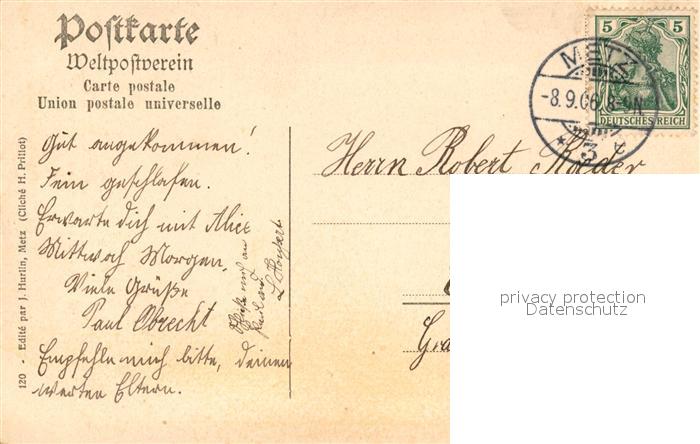 Postkarte
Weltpostverein
Carte postale
Union postale universelle
5 5
DEUTSCHES REICH
METZ
-8.9.06.8-9N.
* 3 c
Gut angekommen!
Fein geschlafen.
Erwarte dich mit Alice
Mittwoch Morgen.
Viele Grüße
Paul Obrecht
Empfehle mich bitte, deinen
werten Eltern.
mich an
Herrn Robert Roeder
Gra
privacy protection
Datenschutz
120 - Edité par J. Hurlin, Metz (Cliché H. Prillot)